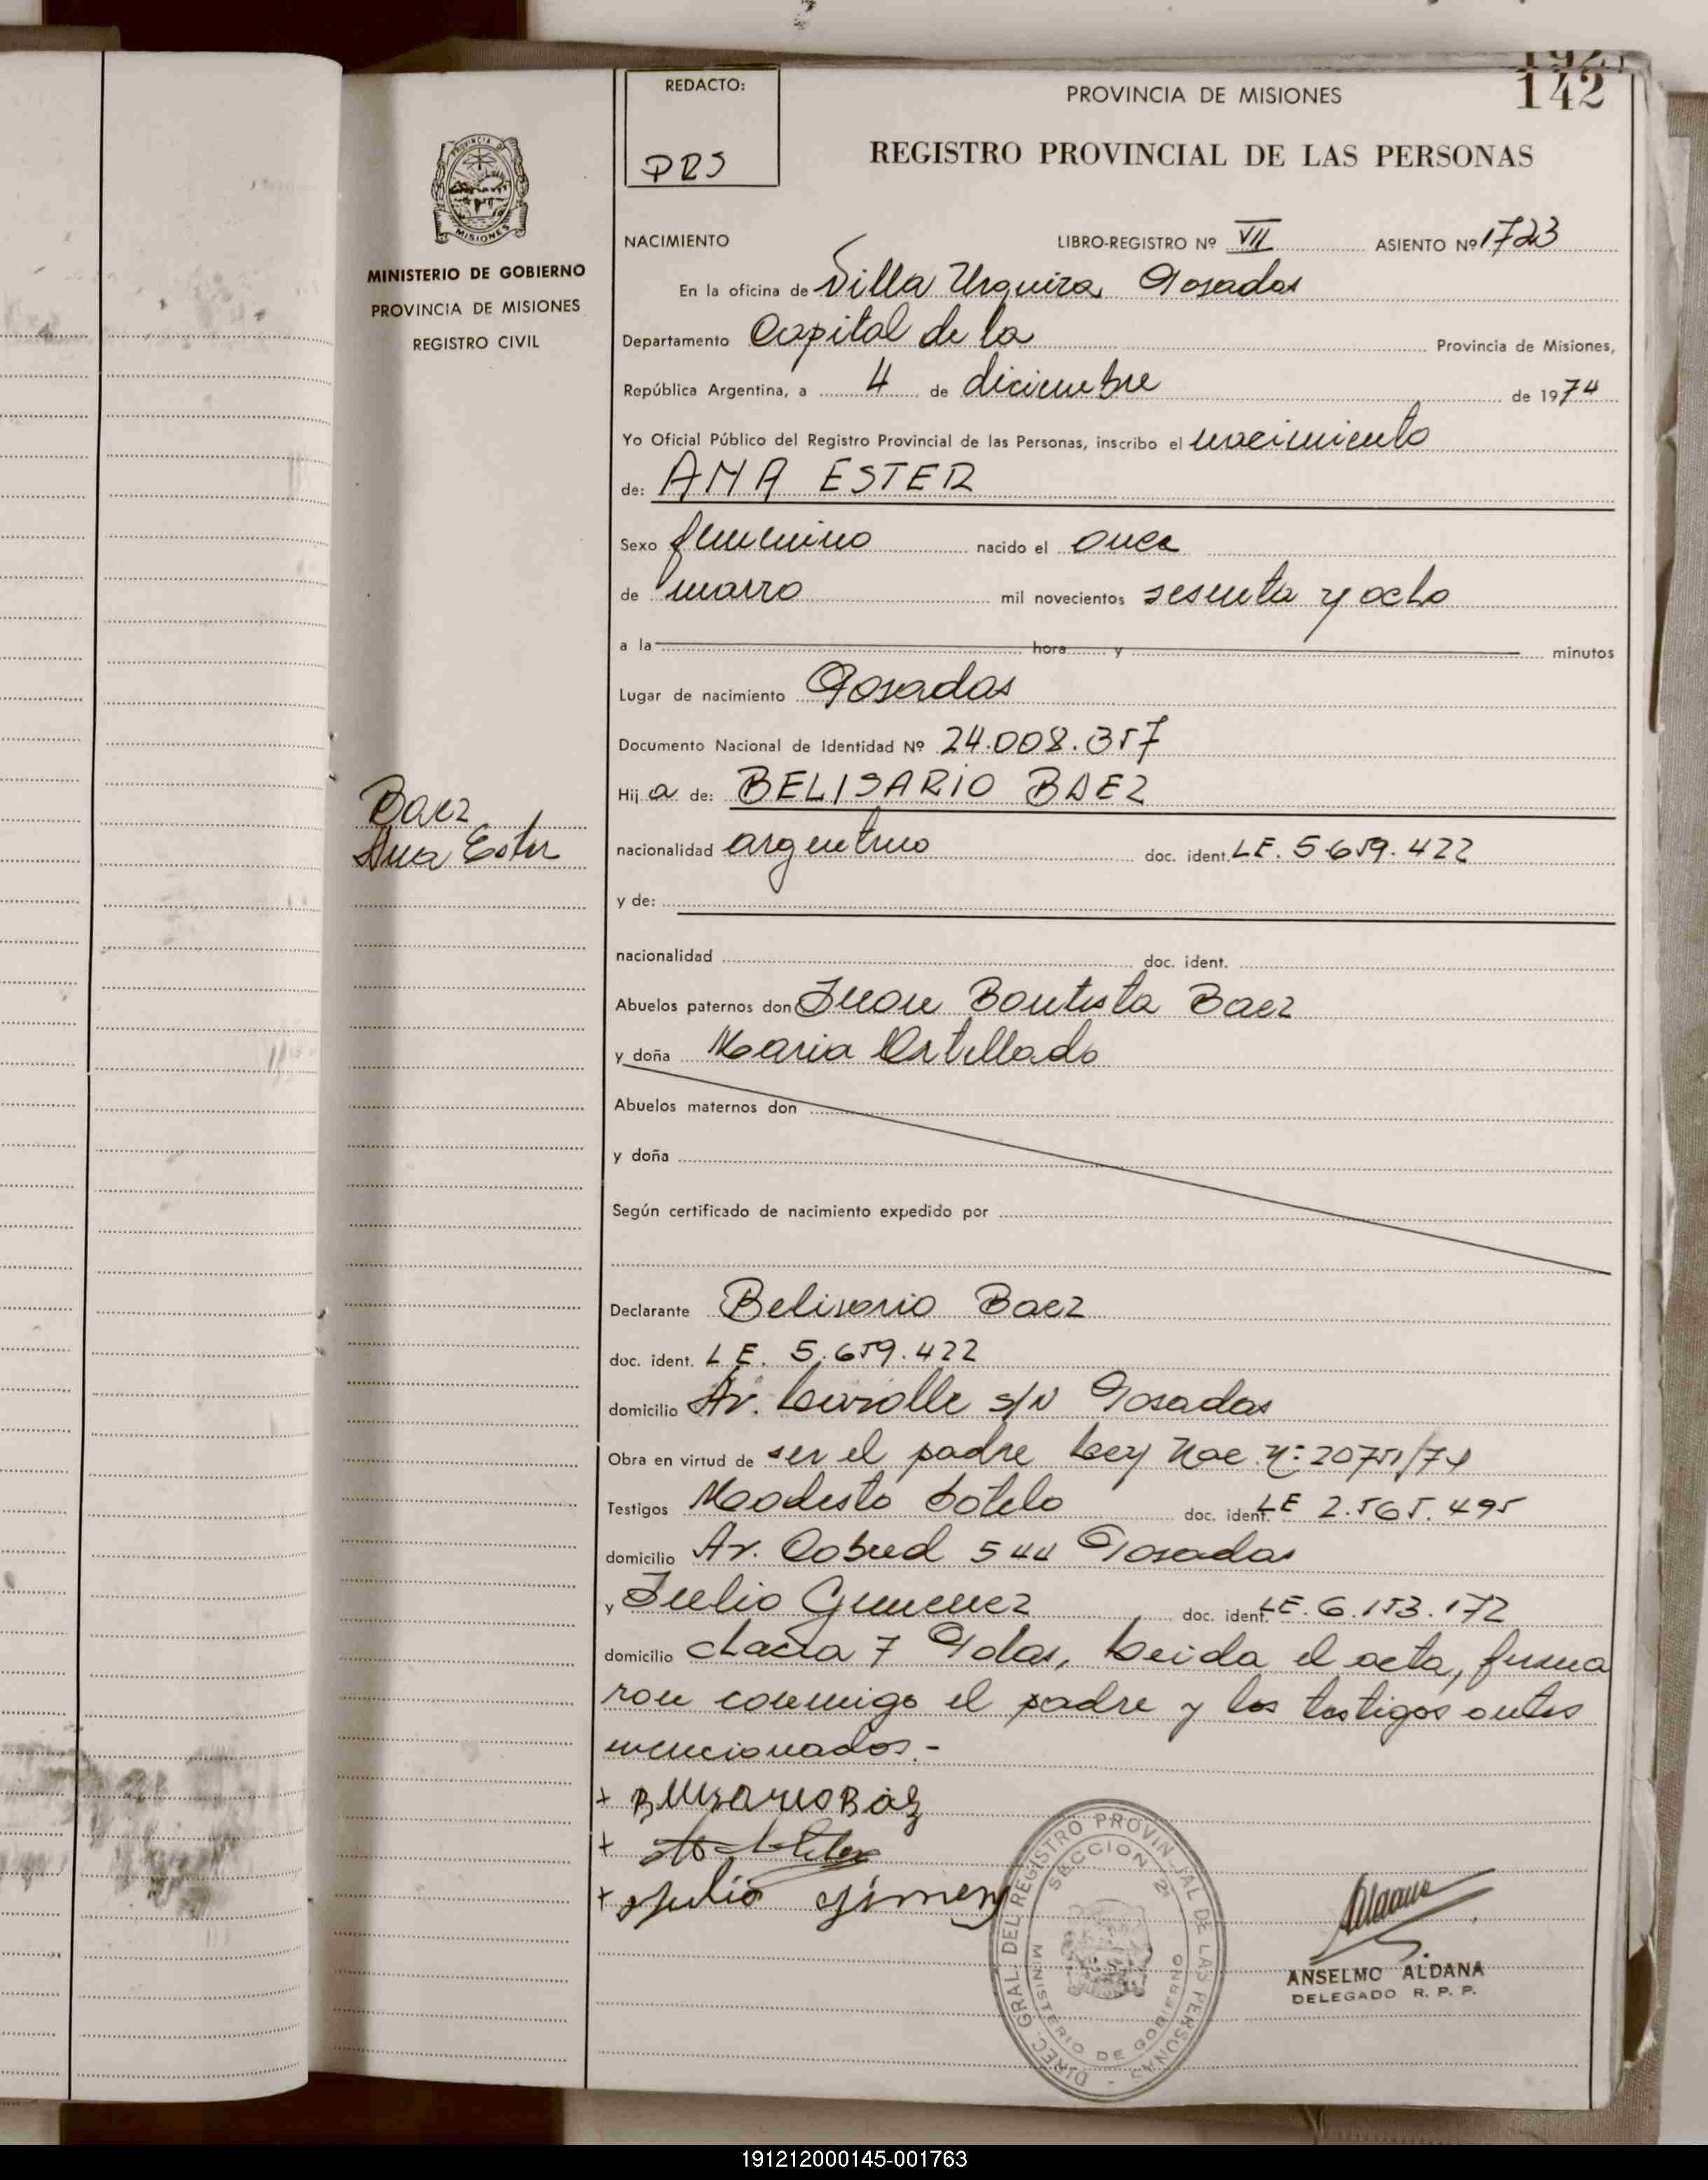 192
142
REDACTO:
PROVINCIA DE MISIONES
REGISTRO PROVINCIAL DE LAS PERSONAS
PROVINCIA DE
MISIONES
MINISTERIO DE GOBIERNO
PROVINCIA DE MISIONES
REGISTRO CIVIL
NACIMIENTO LIBRO-REGISTRO Nº VII ASIENTO Nº 1723
En la oficina de Villa Urquiza Posadas
Departamento Capital de la Provincia de Misiones,
República Argentina, a 4 de diciembre de 1974
Yo Oficial Público del Registro Provincial de las Personas, inscribo el nacimiento
de: ANA ESTER
Sexo femenino nacido el once
de marzo mil novecientos sesenta y ocho
a la hora y minutos
Lugar de nacimiento Posadas
Documento Nacional de Identidad Nº 24.008.357
Hij a de: BELISARIO BAEZ
Baez
Ana Ester
nacionalidad argentino doc. ident. LE. 5.659.422
y de:
nacionalidad doc. ident.
Abuelos paternos don Juan Bautista Baez
y doña Maria Ortellado
Abuelos maternos don
y doña
Según certificado de nacimiento expedido por
Declarante Belisario Baez
doc. ident. L E. 5.659.422
domicilio Av. Lavalle s/N Posadas
Obra en virtud de ser el padre Ley Nac. Nº 20751/74
Testigos Modesto Sotelo doc. ident. LE 2.565.495
domicilio Av. Cabred 544 Posadas
y Julio Gimenez doc. ident. LE. 6.153.172
domicilio chacra 7 Pdas, Leida el acta, firma
ron conmigo el padre y los testigos antes
mencionados.-
+ Belisario Baez
+
+ Julio Gimenez
DIREC. GRAL. DEL REGISTRO PROVINCIAL DE LAS PERSONAS
SECCION 2ª
MINISTERIO DE GOBIERNO
Aldana
ANSELMO ALDANA
DELEGADO R. P. P.
191212000145-001763